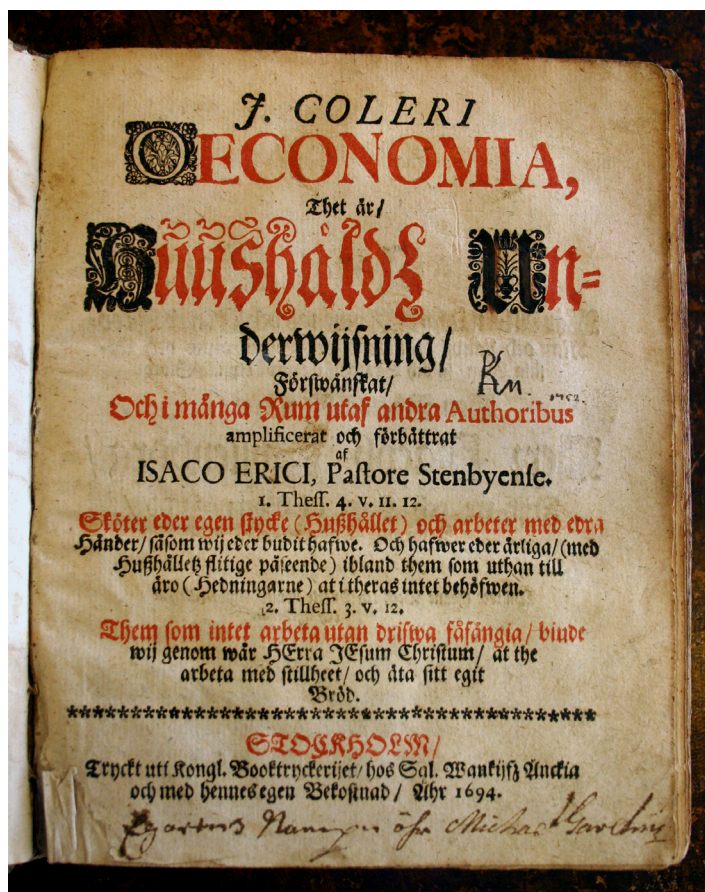 J. COLERI
OECONOMIA,
Thet är/
Hüüßhåldz Un-
derwijſning/
Förſwänſkat/
Och i många Rum utaf andra Authoribus
amplificerat och förbättrat
af
ISACO ERICI, Paſtore Stenbyenſe.
1. Theſſ. 4. v. 11. 12.
Sköter eder egen ſtycke (Hußhållet) och arbeter med edra
Händer/ ſåſom wij eder budit hafwe. Och hafwer eder ärliga/ (med
Hußhålletz flitige påſeende) ibland them ſom uthan till
äro (Hedningarne) at i theras intet behöfwen.
2. Theſſ. 3. v. 12.
Them ſom intet arbeta utan drifwa fåfängia/ biude
wij genom wår HErra JEſum Chriſtum/ at the
arbeta med ſtillheet/ och äta ſitt egit
Bröd.
******************************************
STOCKHOLM/
Tryckt uti Kongl. Booktryckerijet/ hos Sal. Wankijfz Änckia
och med hennes egen Bekoſtnad/ Åhr 1694.
Egarens Namn är Michael